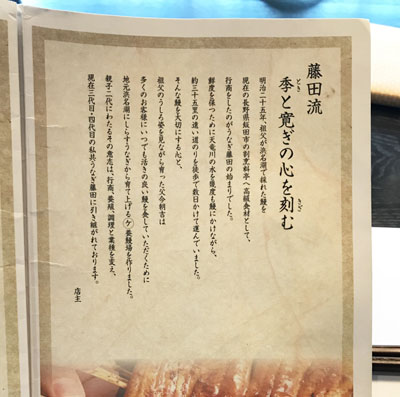 藤田流
季と寛ぎの心を刻む
とき
きざ
明治二十五年、祖父が浜名湖で採れた鰻を
現在の長野県飯田市の割烹料亭へ高級食材として、
行商をしたのがうなぎ藤田の始まりでした。
鮮度を保つために天竜川の水を幾度も鰻にかけながら、
約三十五里の遠い道のりを徒歩で数日かけて運んでいました。
そんな鰻を大切にする心と、
祖父のうしろ姿を見ながら育った父今朝吉は
多くのお客様にいつでも活きの良い鰻を食していただくために
地元浜名湖にしらすうなぎから育て上げる㋘養鰻場を作りました。
親子二代にわたるその意志は、行商、養殖、調理と業種を変え、
現在三代目・四代目の私共うなぎ藤田に引き継がれております。
店主